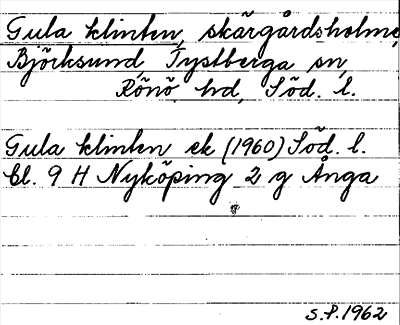 Gula klinten, skärgårdsholme,
Björksund, Tystberga sn,
Rönö hd, Söd. l.
Gula klinten ek (1960) Söd. l.
Bl. 9 H Nyköping 2 g Ånga
S.P. 1962